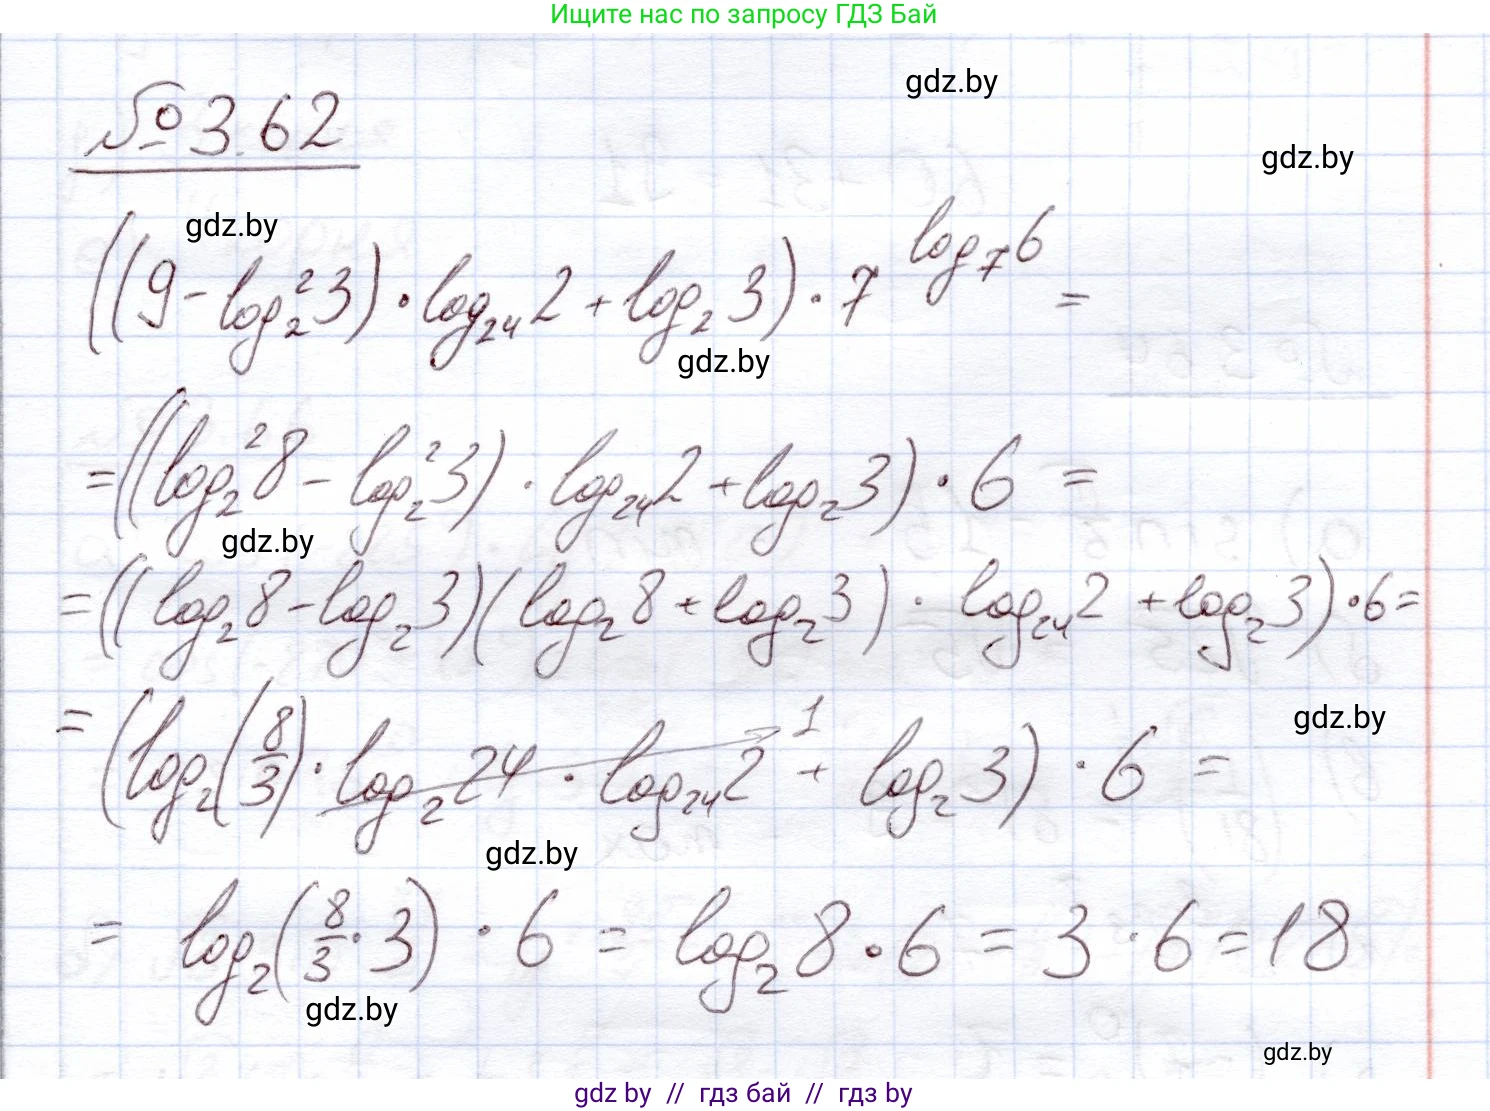 Ищите нас по запросу ГДЗ Бай
gdz.by
№ 3.62
gdz.by
gdz.by
((9 - log₂²3) · log₂₄2 + log₂3) · 7^(log₇6) =
gdz.by
= ((log₂²8 - log₂²3) · log₂₄2 + log₂3) · 6 =
gdz.by
= ((log₂8 - log₂3)(log₂8 + log₂3) · log₂₄2 + log₂3) · 6 =
gdz.by
= (log₂(8/3) · log₂24 · log₂₄2 1 + log₂3) · 6 =
gdz.by
= log₂(8/3 · 3) · 6 = log₂8 · 6 = 3 · 6 = 18
gdz.by
gdz.by
gdz by // гдз бай // гдз by